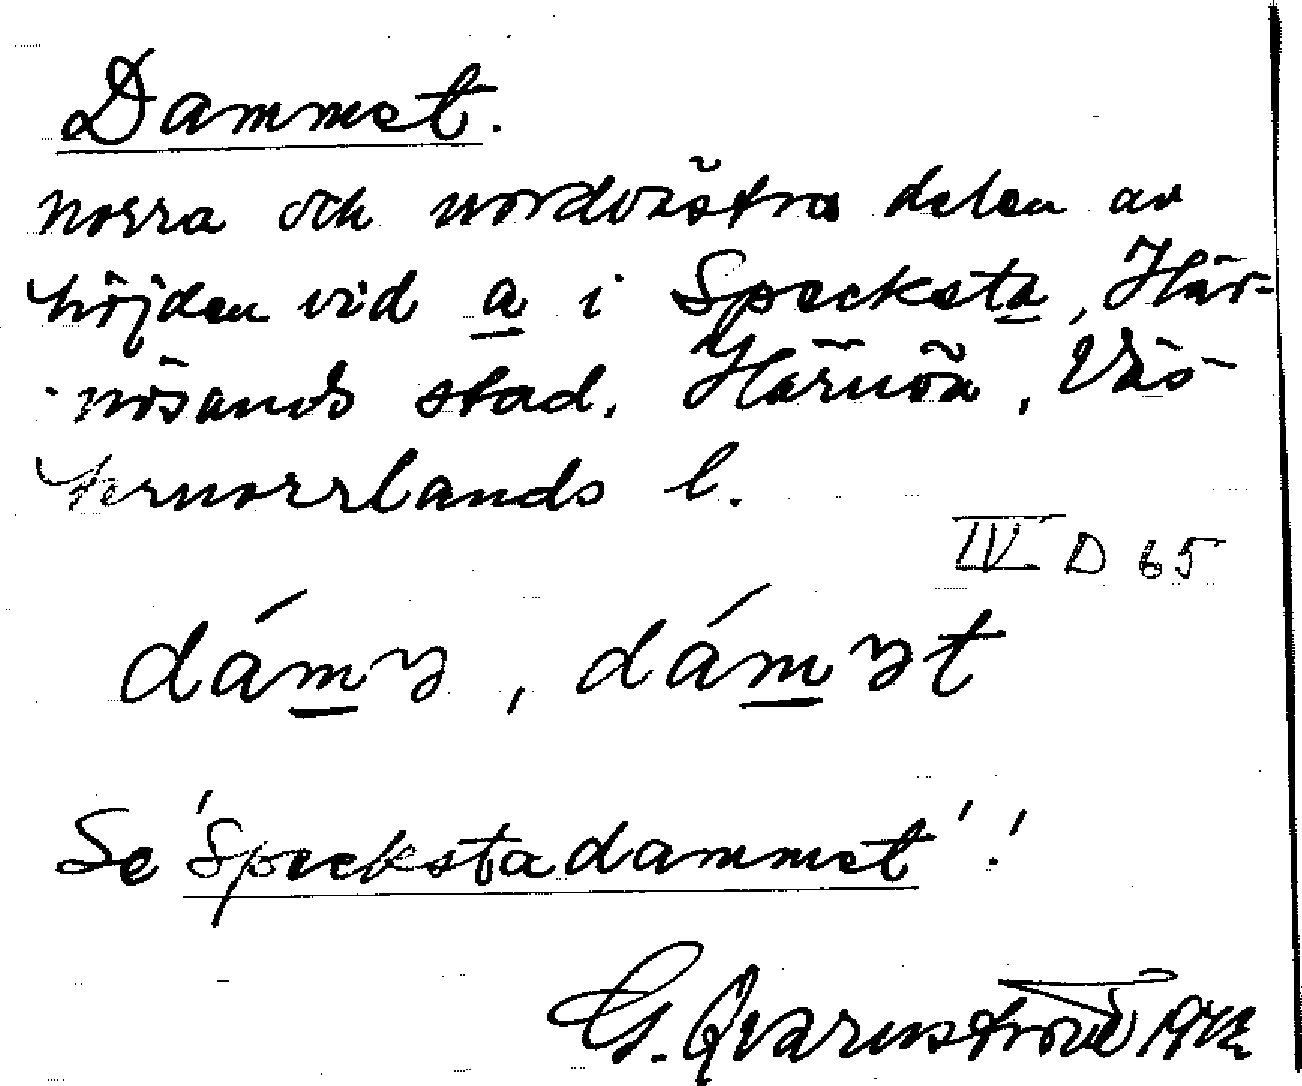 Dammet.
norra och nordvästra delen av
höjden vid a i Specksta, Här-
nösands stad. Härnön, Väs-
ternorrlands l.
IV D 65
dámɜ, dámɜt
Se 'Speckstadammet'!
G. Qvarnström 1942